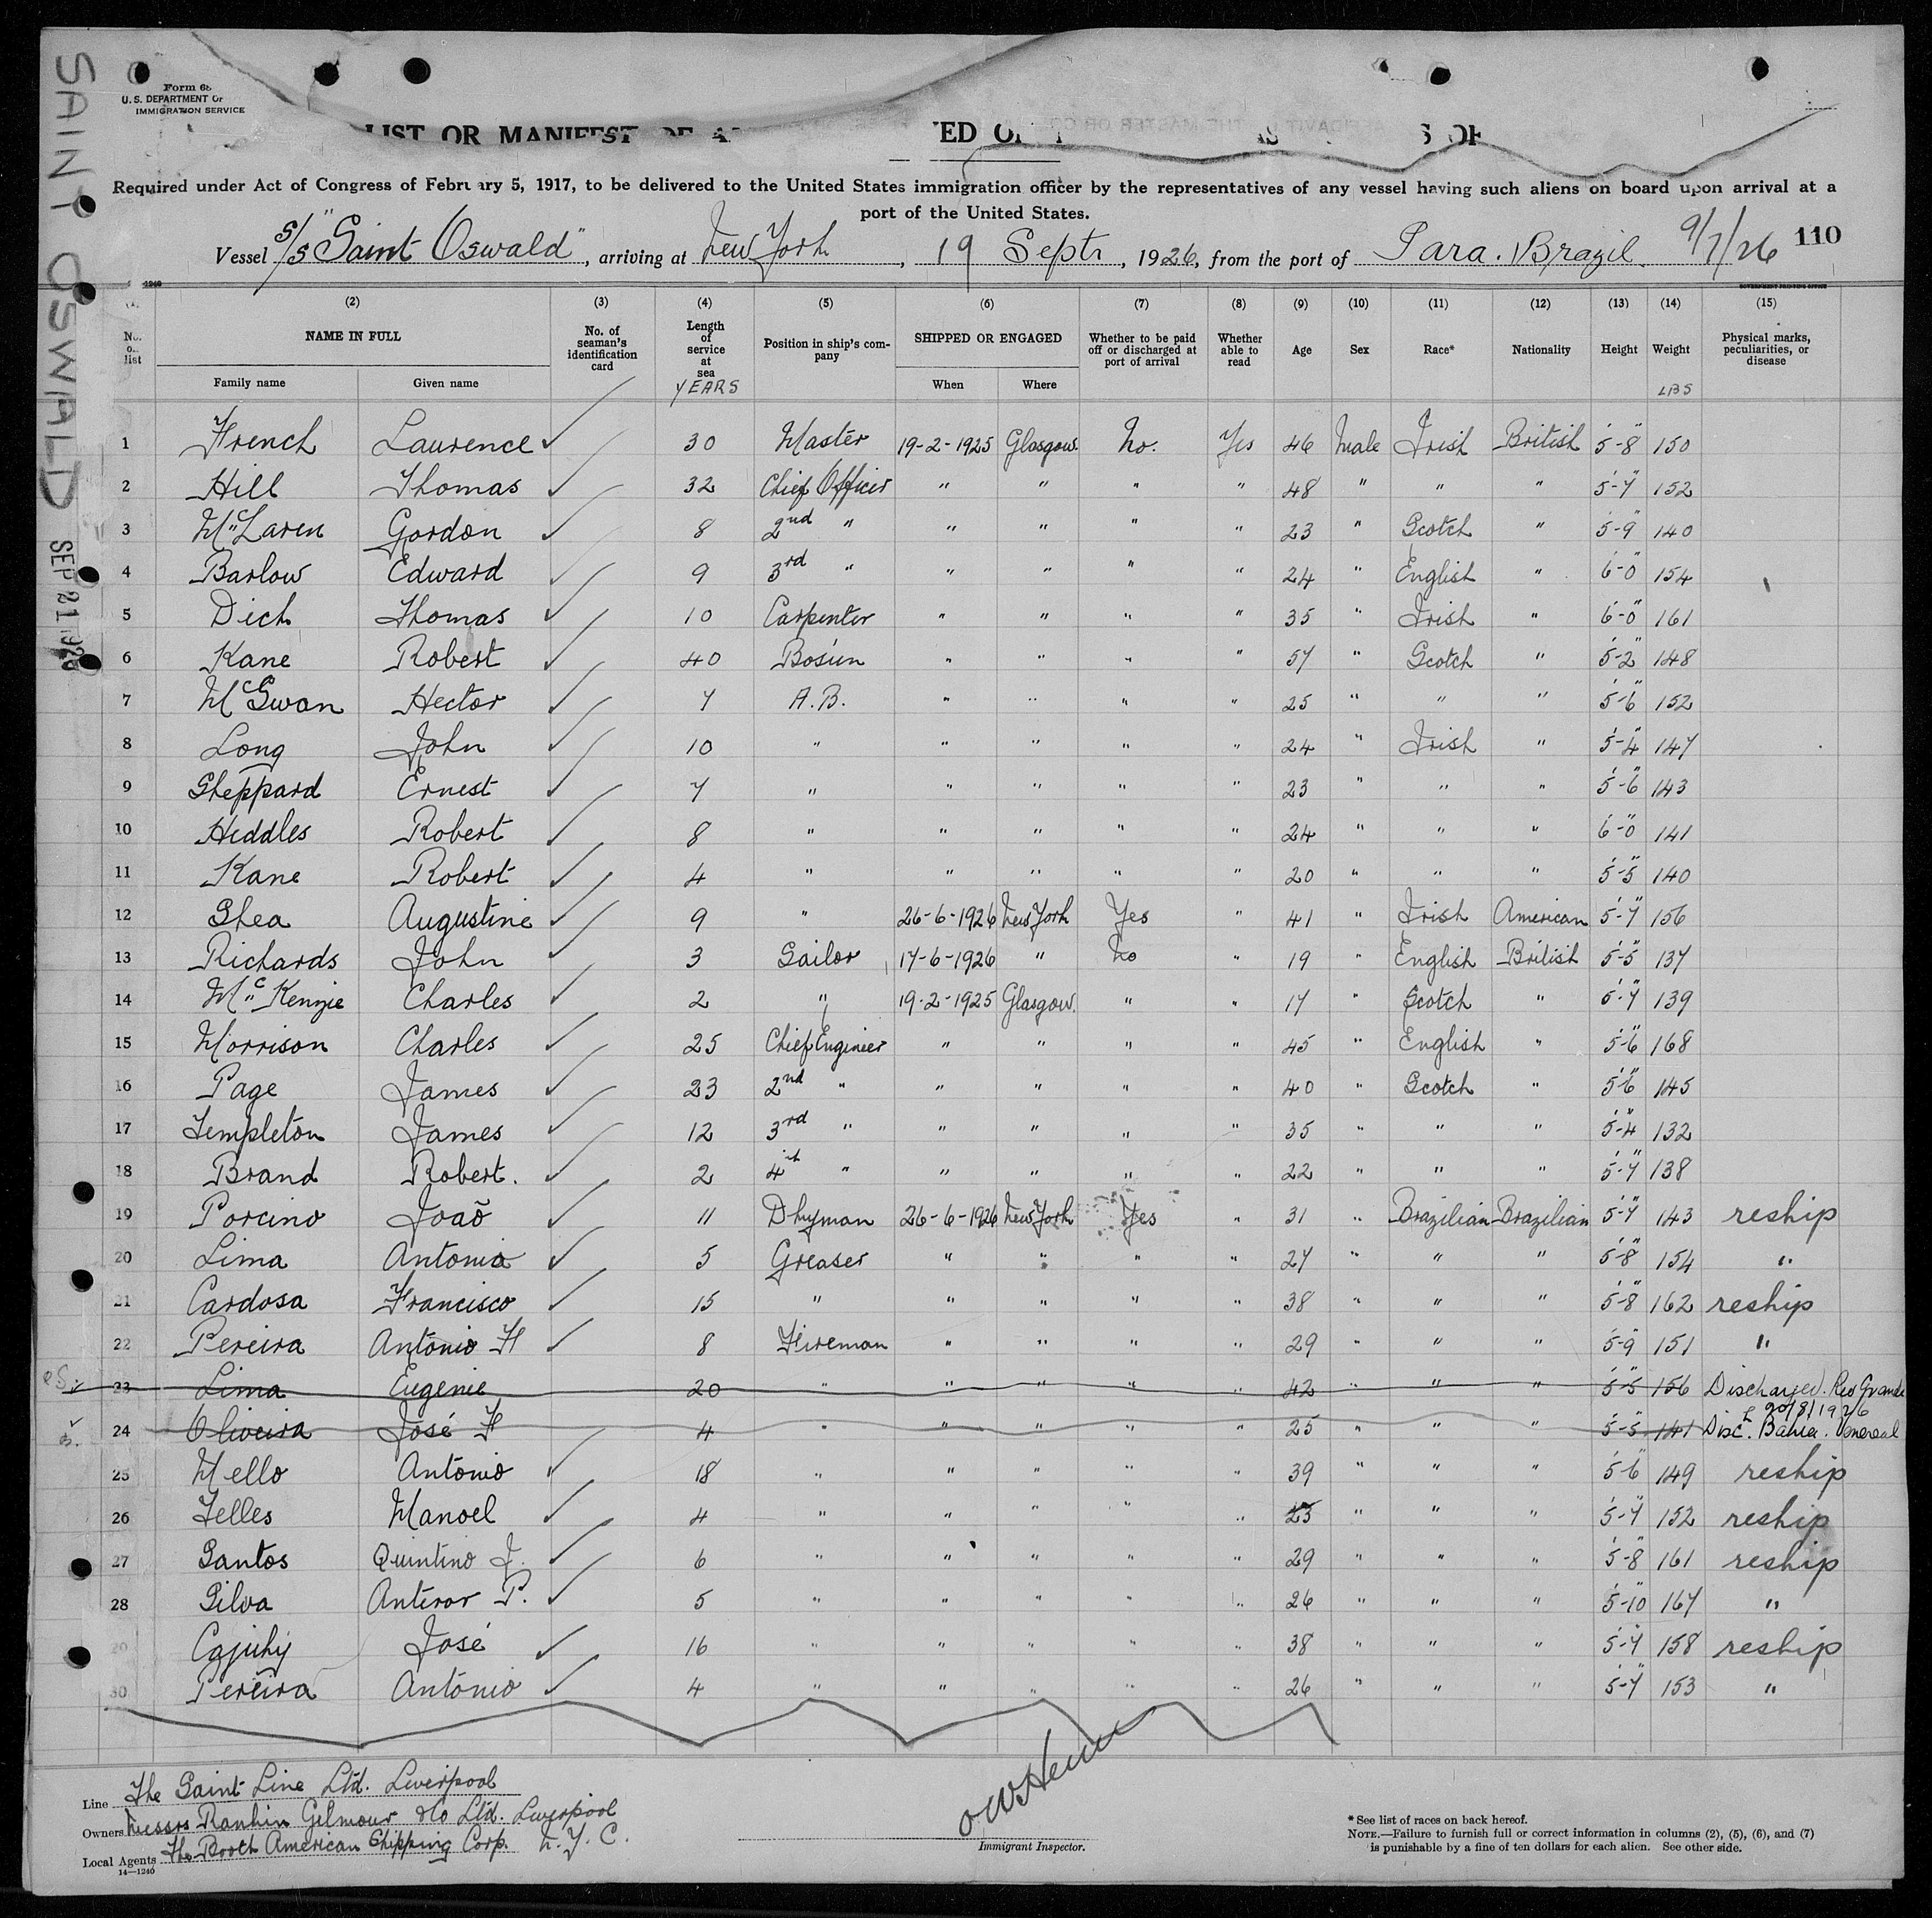 SAINT OSWALD SEP 21 1926
Form 68
U. S. DEPARTMENT OF
IMMIGRATION SERVICE
LIST OR MANIFEST OF
Required under Act of Congress of February 5, 1917, to be delivered to the United States immigration officer by the representatives of any vessel having such aliens on board upon arrival at a
port of the United States.
Vessel S/S "Saint Oswald", arriving at New York, 19 Septr, 1926, from the port of Para. Brazil. 9/7/26 110
(1) (2) (3) (4) (5) (6) (7) (8) (9) (10) (11) (12) (13) (14) (15)
No. on list NAME IN FULL No. of seaman's identification card Length of service at sea YEARS Position in ship's company SHIPPED OR ENGAGED Whether to be paid off or discharged at port of arrival Whether able to read Age Sex Race* Nationality Height Weight LBS Physical marks, peculiarities, or disease
Family name Given name When Where
1 French Laurence ✓ 30 Master 19-2-1925 Glasgow. No. Yes 46 Male Irish British 5'-8" 150
2 Hill Thomas ✓ 32 Chief Officer " " " " 48 " " " 5-7 152
3 McLaren Gordon ✓ 8 2nd " " " " " 23 " Scotch " 5-9 140
4 Barlow Edward ✓ 9 3rd " " " " " 24 " English " 6-0 154
5 Dich Thomas ✓ 10 Carpenter " " " " 35 " Irish " 6-0 161
6 Kane Robert ✓ 40 Bosun " " " " 57 " Scotch " 5-2 148
7 McSwan Hector ✓ 7 A.B. " " " " 25 " " " 5-6 152
8 Long John ✓ 10 " " " " " 24 " Irish " 5-4 147
9 Sheppard Ernest ✓ 7 " " " " " 23 " " " 5-6 143
10 Hiddles Robert ✓ 8 " " " " " 24 " " " 6-0 141
11 Kane Robert ✓ 4 " " " " " 20 " " " 5-5 140
12 Shea Augustine ✓ 9 " 26-6-1926 New York Yes " 41 " Irish American 5-7 156
13 Richards John ✓ 3 Sailor 17-6-1926 " No " 19 " English British 5-5 137
14 McKenzie Charles ✓ 2 " 19-2-1925 Glasgow. " " 17 " Scotch " 5-7 139
15 Morrison Charles ✓ 25 Chief Engineer " " " " 45 " English " 5-6 168
16 Page James ✓ 23 2nd " " " " " 40 " Scotch " 5-6 145
17 Templeton James ✓ 12 3rd " " " " " 35 " " " 5-4 132
18 Brand Robert. ✓ 2 4th " " " " " 22 " " " 5-7 138
19 Porcino João ✓ 11 Dkyman 26-6-1926 New York Yes " 31 " Brazilian Brazilian 5-7 143 reship
20 Lima Antonio ✓ 5 Greaser " " " " 27 " " " 5-8 154 "
21 Cardosa Francisco ✓ 15 " " " " " 38 " " " 5-8 162 reship
22 Pereira Antonio F ✓ 8 Fireman " " " " 29 " " " 5-9 151 "
23 Lima Eugenie 20 " " " " " 42 " " " 5-5 156 Discharged. Rio Grande
20/8/1926
24 Oliveira José F 4 " " " " " 25 " " " 5-5 141 Disc. Bahia. Venereal
25 Mello Antonio ✓ 18 " " " " " 39 " " " 5-6 149 reship
26 Telles Manoel ✓ 4 " " " " " 25 " " " 5-7 152 reship
27 Santos Quintino J. ✓ 6 " " " " " 29 " " " 5-8 161 reship
28 Silva Anteror P. ✓ 5 " " " " " 26 " " " 5-10 167 "
29 José ✓ 16 " " " " " 38 " " " 5-7 158 reship
30 Pereira Antonio ✓ 4 " " " " " 26 " " " 5-7 153 "
Line The Saint Line Ltd. Liverpool
Owners Messrs Rankin Gilmour & Co Ltd. Liverpool
Local Agents The Booth American Shipping Corp. N.Y.C.
14—1240
Immigrant Inspector.
* See list of races on back hereof.
NOTE.—Failure to furnish full or correct information in columns (2), (5), (6), and (7)
is punishable by a fine of ten dollars for each alien. See other side.